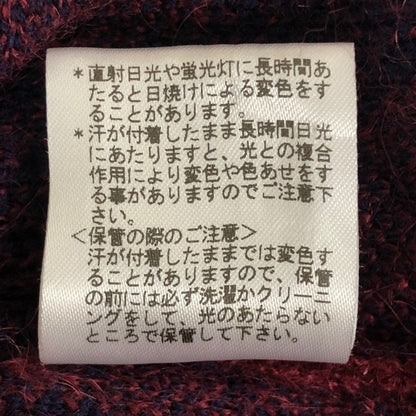 ＊直射日光や蛍光灯に長時間あ
たると日焼けによる変色をす
ることがあります。
＊汗が付着したまま長時間日光
にあたりますと、光との複合
作用により変色や色あせをす
る事がありますのでご注意下
さい。
＜保管の際のご注意＞
汗が付着したままでは変色す
ることがありますので、保管
の前には必ず洗濯かクリーニ
ングをして、光のあたらない
ところで保管して下さい。